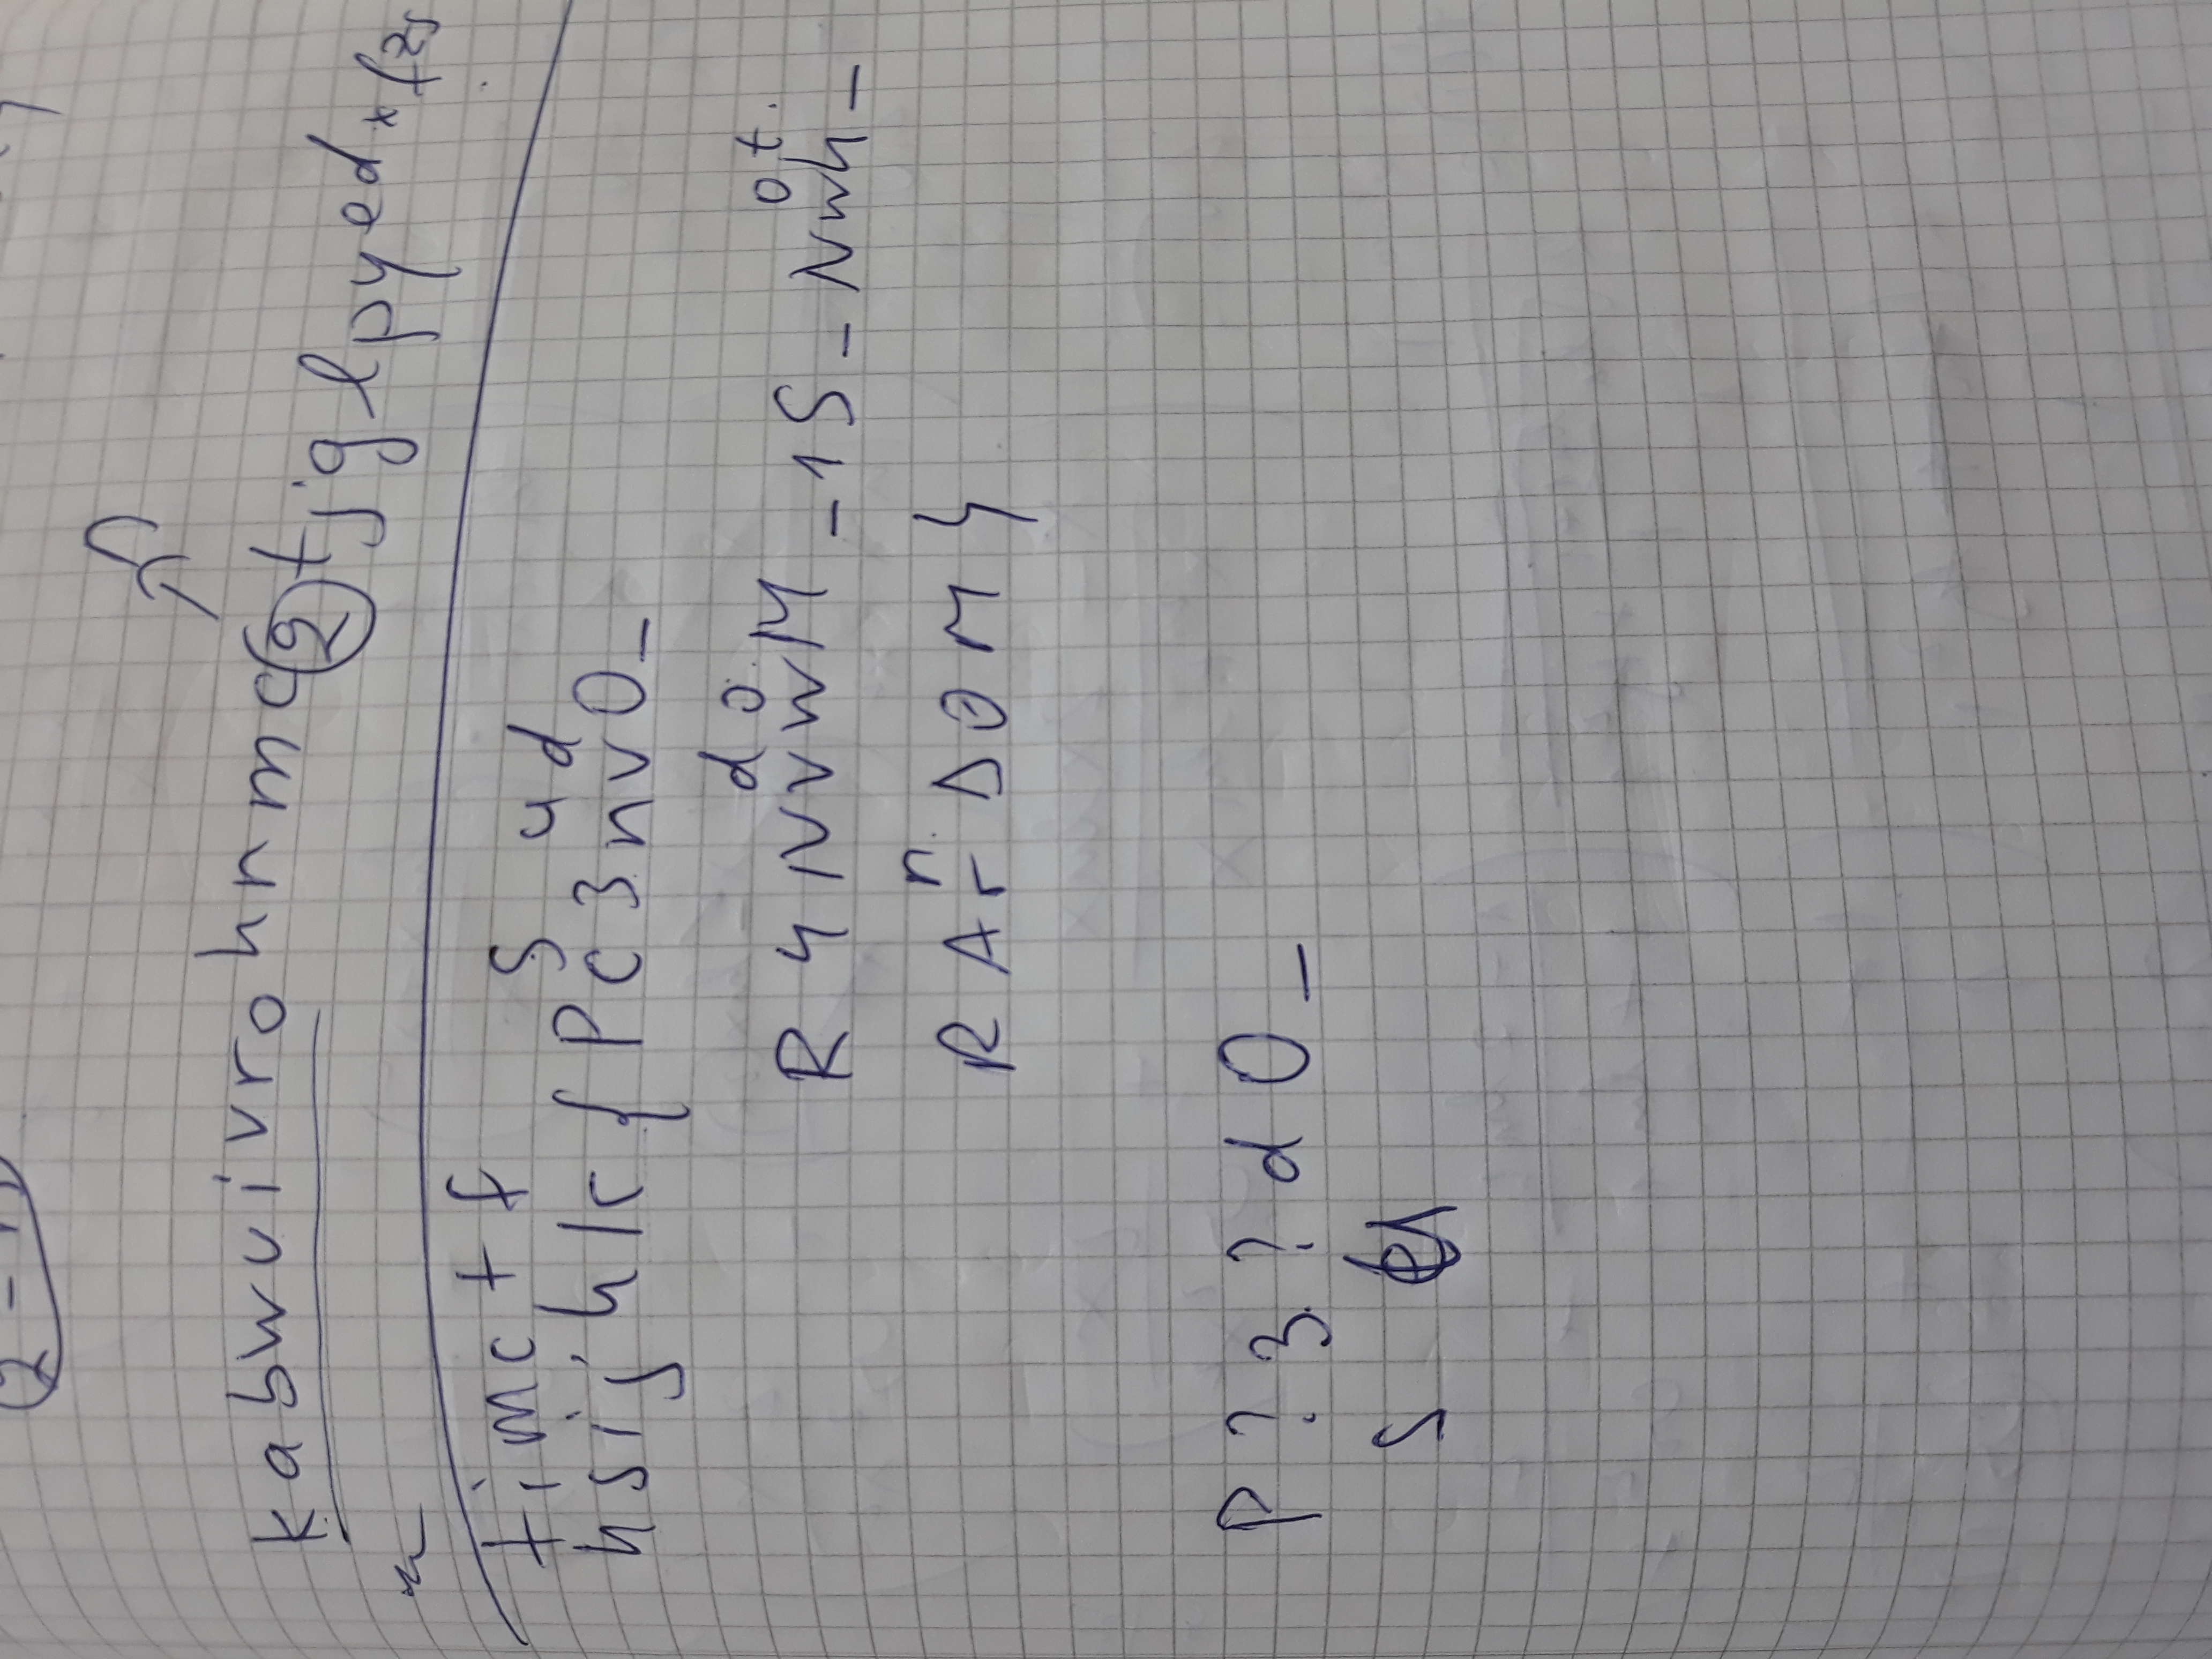 kabwuivrohnmcqtjglpyedxfzs
timctf
s ud
hsijhk{Pc3nvO_
d o.
R4NVWM_1S_Nwh_
o t.
n.
RArDOM}
P?3?dO_
s